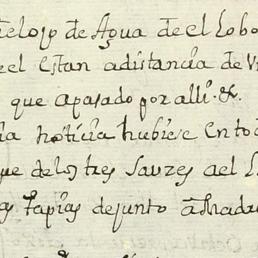 el ojo de Agua de el Lobo
eel estan adistancia de V
que apasado por alli. &.
ia noticia hubiese en to
ue delos tres Sauzes ael L
s tapias dejunto a Madr